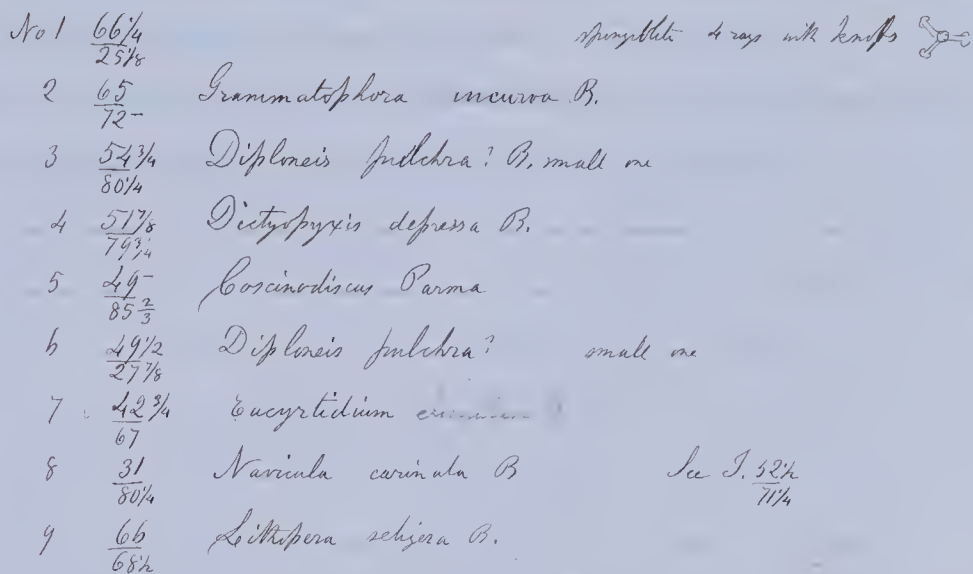 No 1 66 1/4 / 25 1/8 spongolite 4 rays with knobs
2 65 / 72- Grammatophora incurva B.
3 54 3/4 / 80 1/4 Diploneis pulchra? B. small one
4 51 7/8 / 79 3/4 Dictyopyxis depressa B.
5 49- / 85 2/3 Coscinodiscus Parma
6 49 1/2 / 27 7/8 Diploneis pulchra? small one
7 42 3/4 / 67 Eucyrtidium
8 31 / 80 1/4 Navicula carinata B See I. 52 1/2 / 71 1/4
9 66 / 68 1/2 Lithopera setigera B.